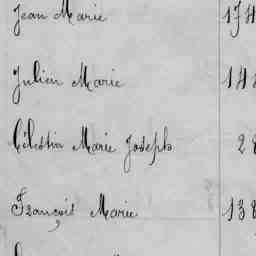 Jean Marie 174
Julien Marie 148
Célestin Marie Joseph 28
François Marie 138